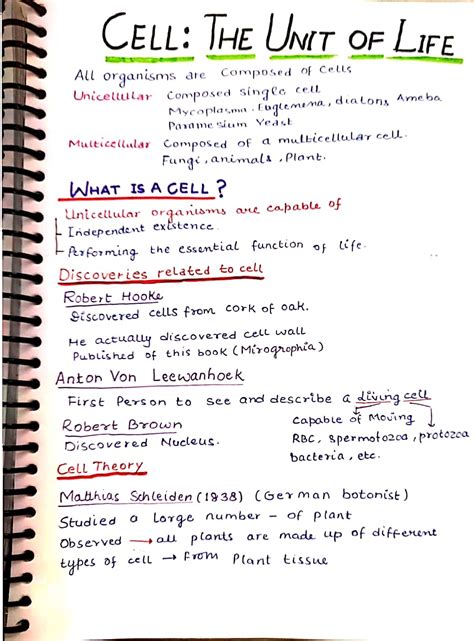 CELL: THE UNIT OF LIFE
All organisms are Composed of Cells
Unicellular Composed single cell
Mycoplasma, Euglemena, diatons, Ameba
Paramesium Yeast
Multicellular Composed of a multicellular cell.
Fungi, animals, Plant.
WHAT IS A CELL?
Unicellular organisms are capable of
Independent existence.
Performing the essential function of life.
Discoveries related to cell
Robert Hooke
Discovered cells from cork of oak.
He actually discovered cell wall
Published of this book (Mirogrophia)
Anton Von Leewanhoek
First Person to see and describe a living cell
Capable of Moving
RBC, Spermotozoa, protozoa
bacteria, etc.
Robert Brown
Discovered Nucleus.
Cell Theory
Matthias Schleiden (1838) (German botonist)
Studied a large number - of plant
Observed → all plants are made up of different
types of cell → From Plant tissue